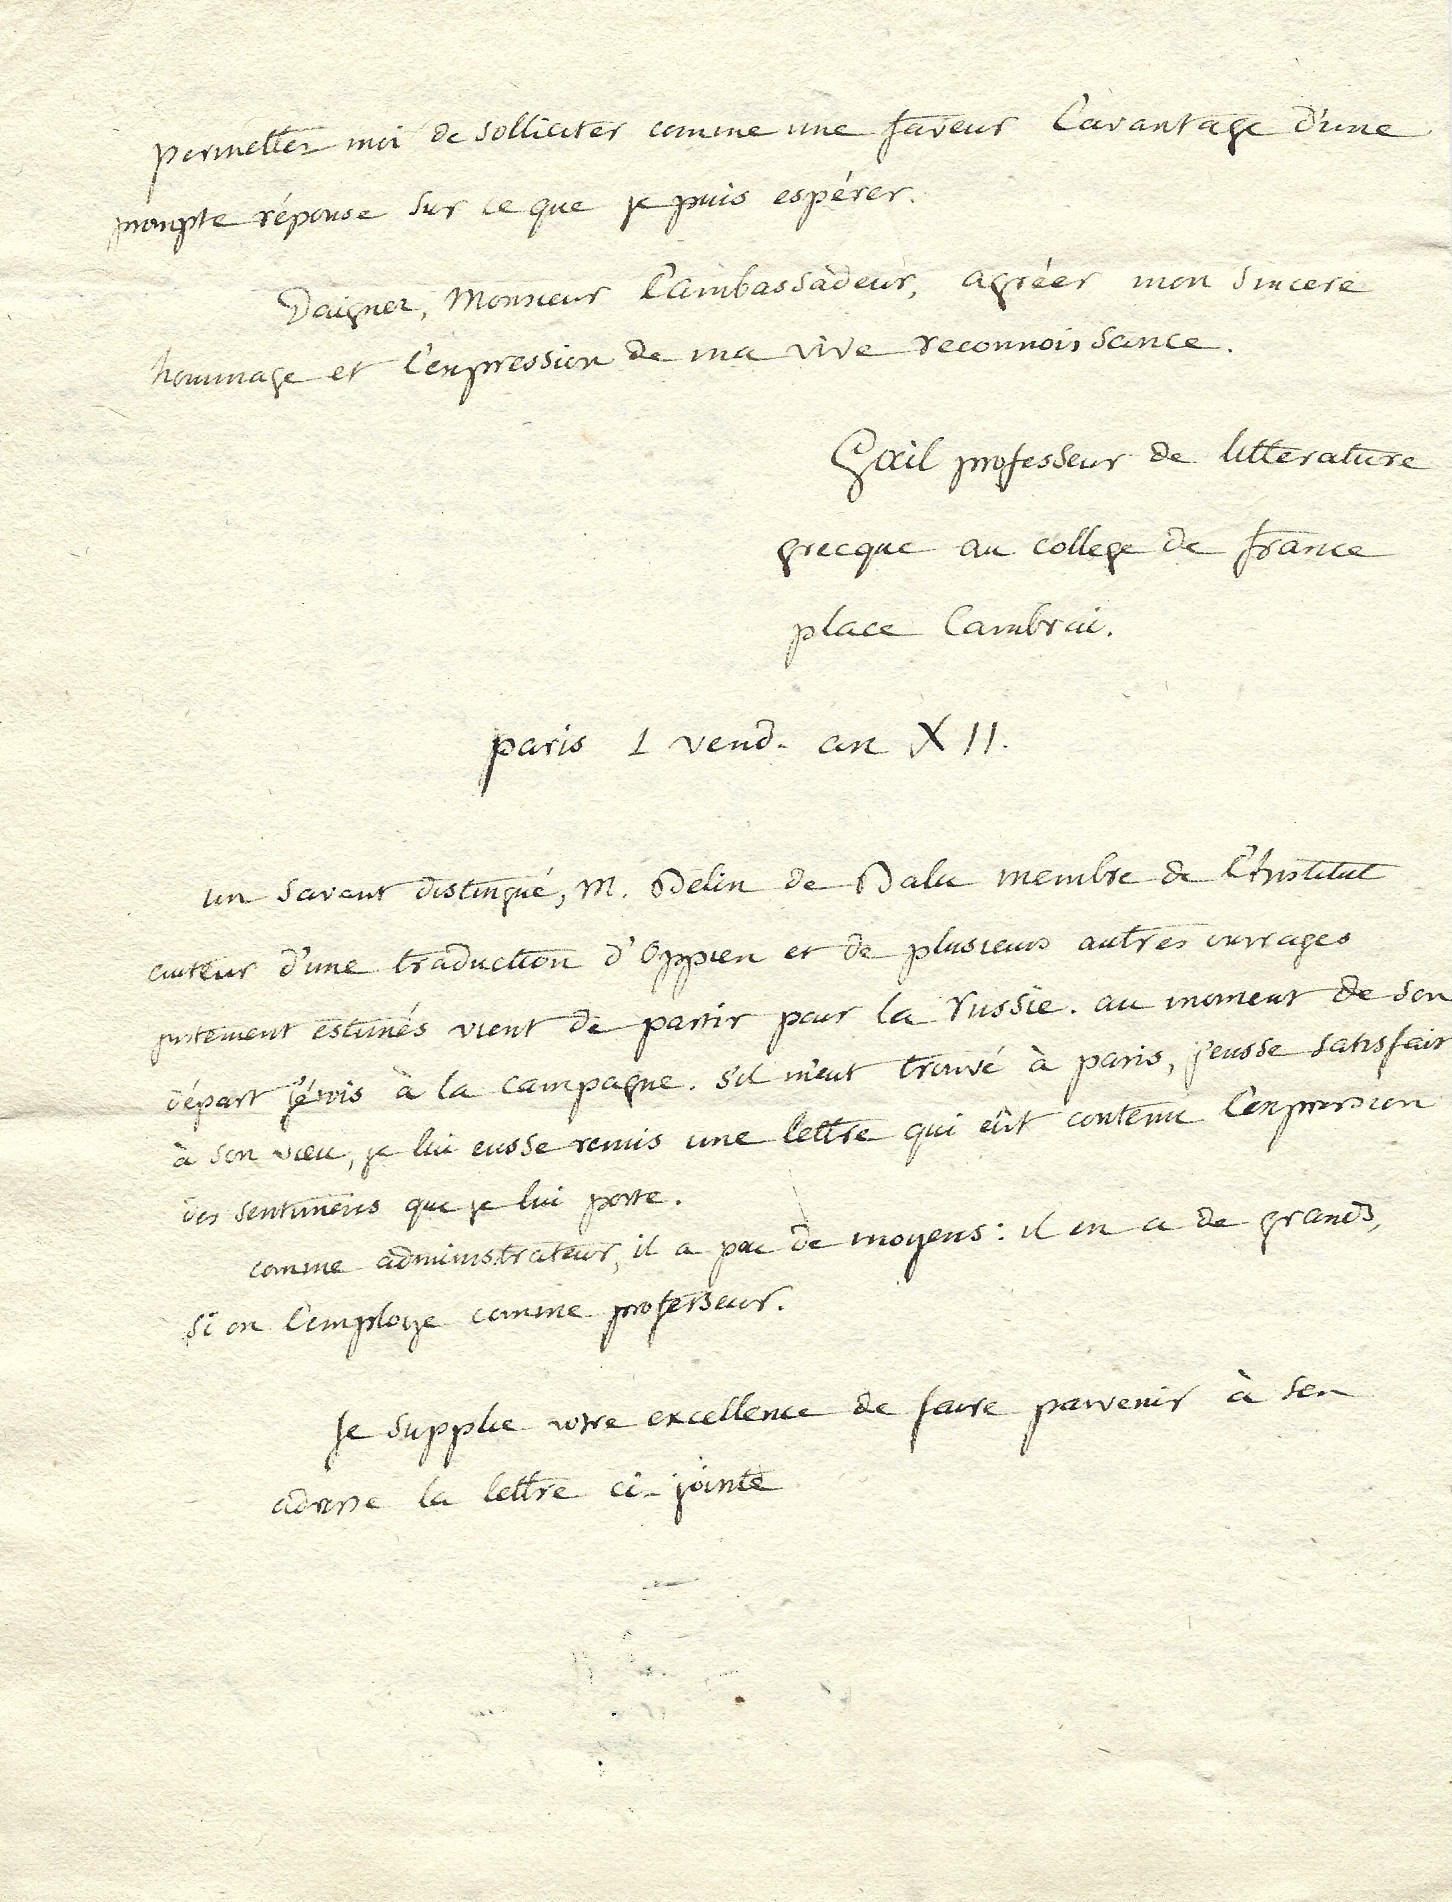 permettez moi de solliciter comme une faveur l'avantage d'une
prompte réponse sur ce que je puis espérer.
Daignez, Monsieur l'ambassadeur, agréer mon sincere
hommage et l'expression de ma vive reconnoissance.
Gail professeur de litterature
grecque au college de france
place Cambrai.
paris 1 vend. an XII.
un savant distingué, M. Belin de Balu membre de l'Institut
auteur d'une traduction d'Oppien et de plusieurs autres ouvrages
justement estimés vient de partir pour la russie. au moment de son
départ j'étois à la campagne. s'il m'eut trouvé à paris, j'eusse satisfait
à son vœu, je lui eusse remis une lettre qui eût contenu l'expression
des sentimens que je lui porte.
comme administrateur, il a peu de moyens : il en a de grands,
si on l'employe comme professeur.
Je supplie votre excellence de faire parvenir à son
adresse la lettre ci-jointe